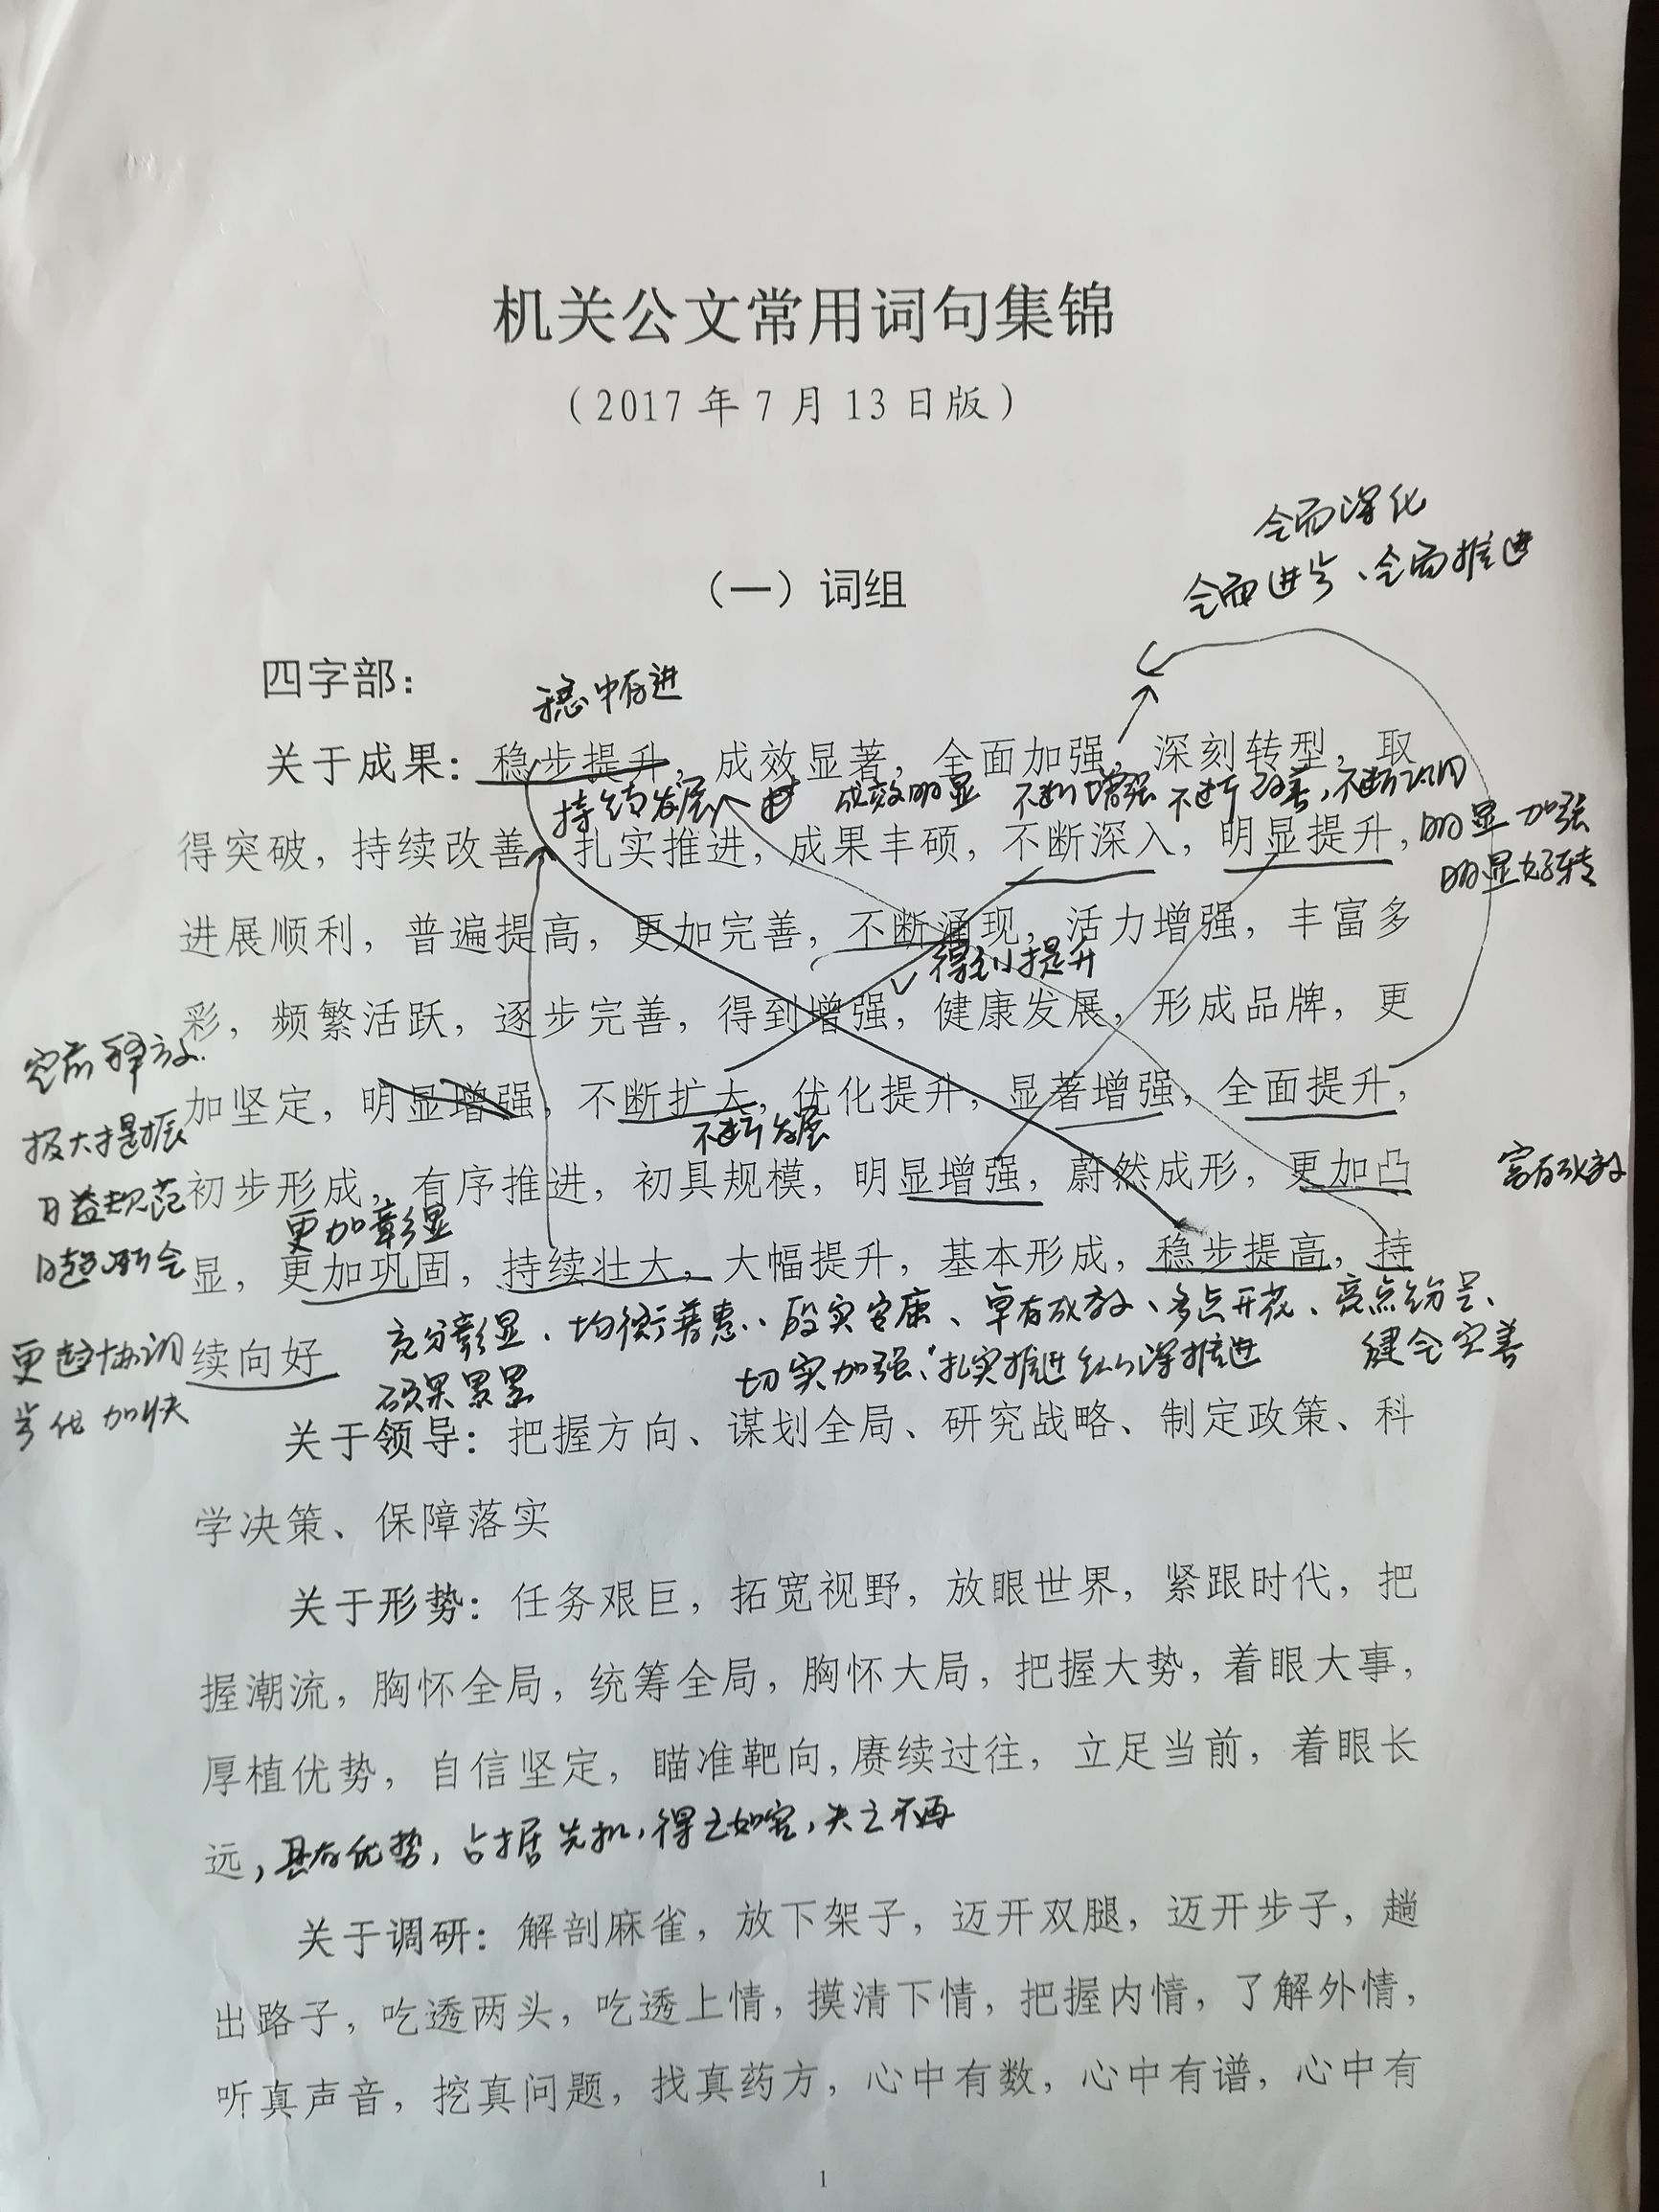 机关公文常用词句集锦
（2017年7月13日版）
全面深化
全面进步、全面推进
（一）词组
四字部：
稳中有进
关于成果：稳步提升，成效显著，全面加强，深刻转型，取
持续发展 成效明显 不断增强 不断改善，不断巩固
得突破，持续改善，扎实推进，成果丰硕，不断深入，明显提升，
明显加强
明显好转
进展顺利，普遍提高，更加完善，不断涌现，活力增强，丰富多
得到提升
彩，频繁活跃，逐步完善，得到增强，健康发展，形成品牌，更
加坚定，明显增强，不断扩大，优化提升，显著增强，全面提升，
不断发展
释放
极大提振
日益规范
日趋
更趋协调
步伐加快
初步形成，有序推进，初具规模，明显增强，蔚然成形，更加凸
富有成效
更加彰显
显，更加巩固，持续壮大，大幅提升，基本形成，稳步提高，持
续向好
充分彰显、均衡普惠、殷实安康、卓有成效、多点开花、亮点纷呈、
硕果累累 切实加强、扎实推进 纵深推进 健全完善
关于领导：把握方向、谋划全局、研究战略、制定政策、科
学决策、保障落实
关于形势：任务艰巨，拓宽视野，放眼世界，紧跟时代，把
握潮流，胸怀全局，统筹全局，胸怀大局，把握大势，着眼大事，
厚植优势，自信坚定，瞄准靶向，赓续过往，立足当前，着眼长
远，具有优势，占据先机，得之如宝，失之不再
关于调研：解剖麻雀，放下架子，迈开双腿，迈开步子，趟
出路子，吃透两头，吃透上情，摸清下情，把握内情，了解外情，
听真声音，挖真问题，找真药方，心中有数，心中有谱，心中有
1